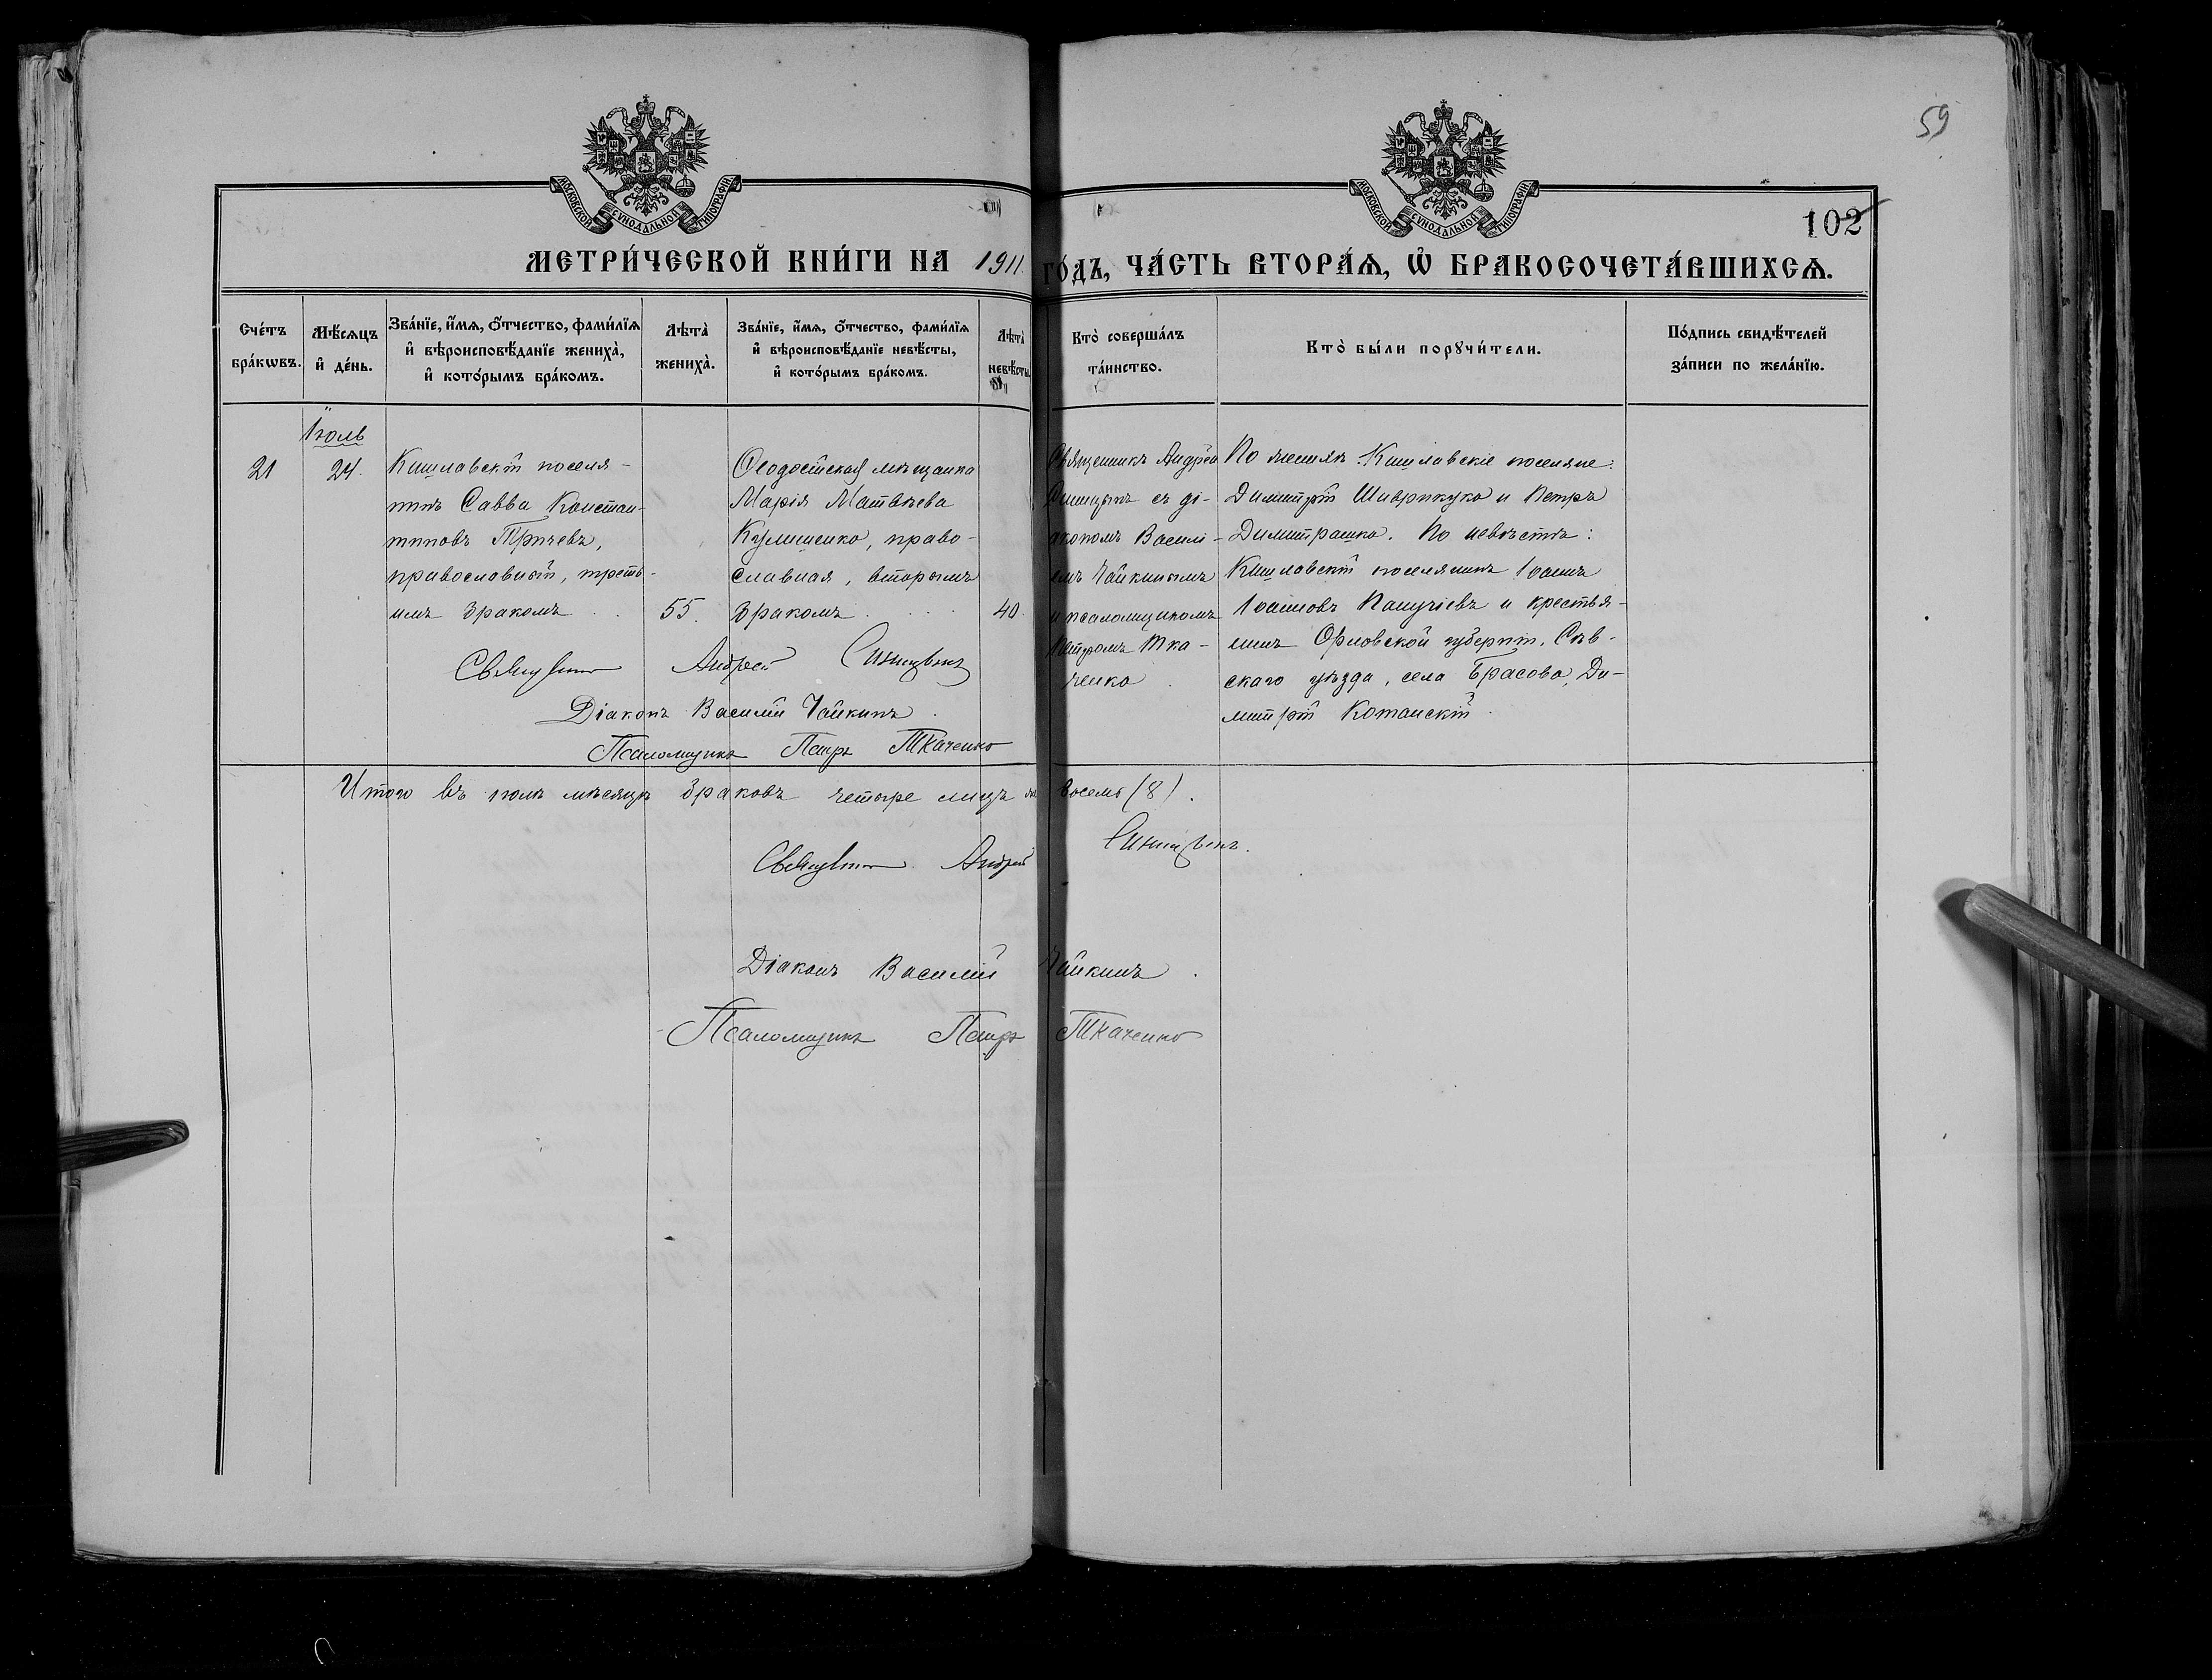 59
МОСКОВСКОЙ СѴНОДАЛЬНОЙ ТИПОГРАФІИ
МОСКОВСКОЙ СѴНОДАЛЬНОЙ ТИПОГРАФІИ
102
МЕТРИ́ЧЕСКОЙ КНИ́ГИ НА 1911 ГО́ДЪ, ЧА́СТЬ ВТОРА́Ѧ, Ѡ҆ БРАКОСОЧЕТА́ВШИХСѦ.
Сче́тъ бра́кѡвъ.
Мѣ́сѧцъ и҆ де́нь.
Зва́нїе, и҆́мѧ, ѻ҆́тчество, фами́лїѧ и҆ вѣроисповѣ́данїе жениха̀, и҆ кото́рымъ бра́комъ.
Лѣта̀ жениха̀.
Зва́нїе, и҆́мѧ, ѻ҆́тчество, фами́лїѧ и҆ вѣроисповѣ́данїе невѣ́сты, и҆ кото́рымъ бра́комъ.
Лѣта̀ невѣ́сты.
Кто̀ соверша́лъ та́инство.
Кто̀ бы́ли порꙋчи́тели.
По́дпись свидѣ́телей за́писи по жела́нїю.
Іюль
21
24.
Кишлавскій поселя-
нинъ Савва Констан-
тиновъ Тричевъ,
православный, треть-
имъ бракомъ
55.
Ѳеодосійская мѣщанка
Марія Матвѣева
Кулишенко, право-
славная, вторымъ
бракомъ
40.
Священникъ Андрей
Синицынъ съ ді-
акономъ Василі-
емъ Чайкинымъ
и псаломщикомъ
Петромъ Тка-
ченко
По женихѣ: Кишлавскіе поселяне:
Димитрій Шиврикуко и Петръ
Димитрашко. По невѣстѣ:
Кишлавскій поселянинъ Іоаннъ
Іоанновъ Папучіевъ и крестья-
нинъ Орловской губерніи, Сѣв-
скаго уѣзда, села Брасова, Ди-
митрій Котанскій.
Священникъ Андрей Синицынъ
Діаконъ Василій Чайкинъ.
Псаломщикъ Петръ Ткаченко
Итого въ іюлѣ мѣсяцѣ браковъ четыре лицъ восемь (8).
Священникъ Андрей Синицынъ.
Діаконъ Василій Чайкинъ.
Псаломщикъ Петръ Ткаченко